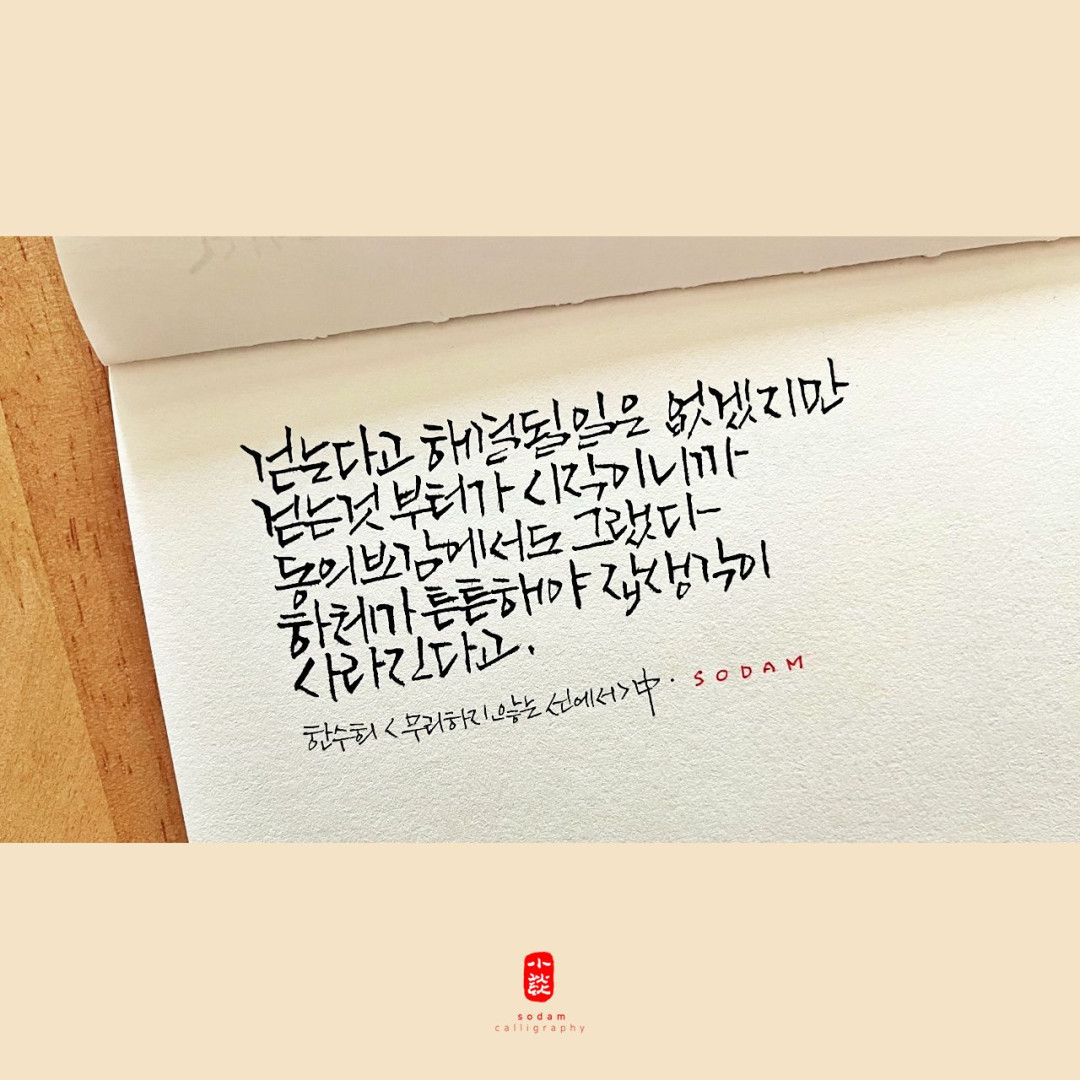 걷는다고 해결될일은 없겠지만
걷는것 부터가 시작이니까
동의보감에서도 그랬다
하체가 튼튼해야 잡생각이
사라진다고.
한수희 <무리하지 않는 선에서> 中. SODAM
小談
sodam
calligraphy